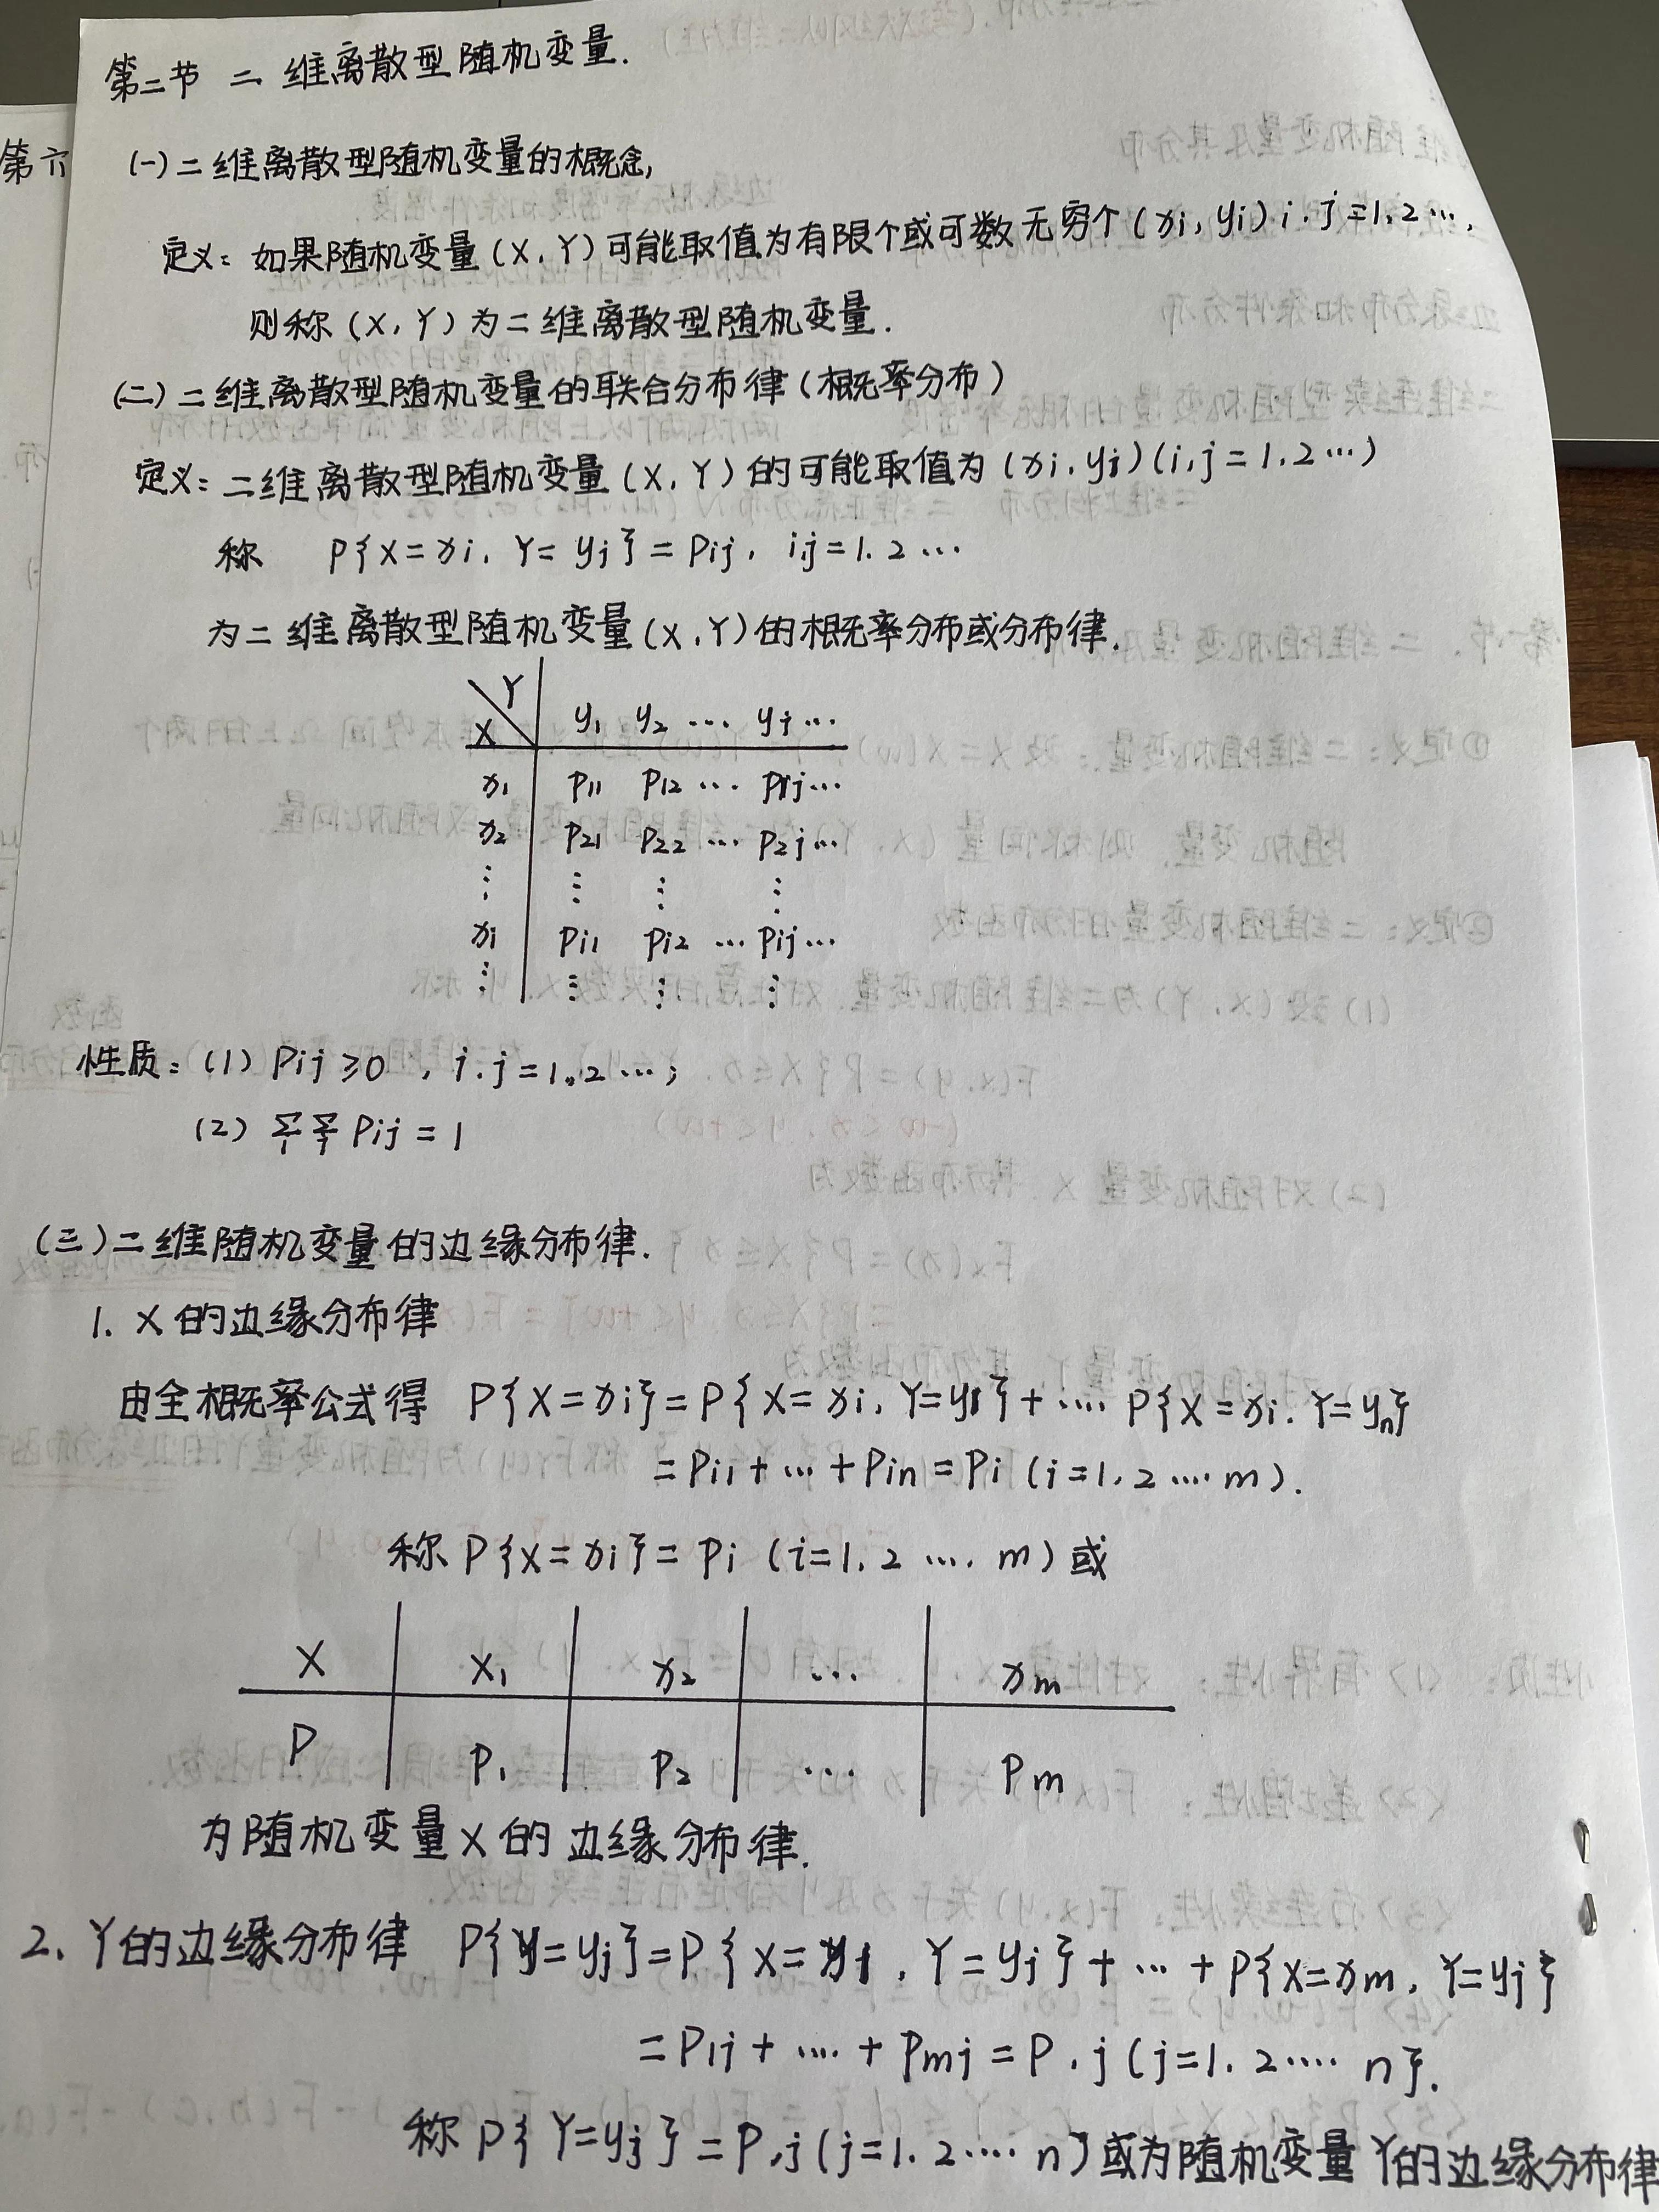 第二节 二维离散型随机变量.
第六
(一)二维离散型随机变量的概念,
定义: 如果随机变量(X,Y)可能取值为有限个或可数无穷个(xi,yi).i.j=1.2…,
则称(X,Y)为二维离散型随机变量.
(二)二维离散型随机变量的联合分布律(概率分布)
定义:二维离散型随机变量(X,Y)的可能取值为(xi,yj)(i,j=1.2…)
称 P{X=xi, Y=yj}=Pij, i.j=1.2…
为二维离散型随机变量(X,Y)的概率分布或分布律.
Y
X y1 y2 … yj …
x1 P11 P12 … P1j…
x2 P21 P22 … P2j…
⋮ ⋮ ⋮ ⋮
xi Pi1 Pi2 … Pij…
⋮ ⋮ ⋮ ⋮
性质:(1) Pij≥0 , i.j=1,2…;
(2) ∑i∑j Pij=1
(三)二维随机变量的边缘分布律.
1. X的边缘分布律
由全概率公式得 P{X=xi}=P{X=xi, Y=y1}+…P{X=xi. Y=yn}
=Pi1+…+Pin=Pi(i=1,2…m).
称P{X=xi}=Pi (i=1.2…m)或
X X1 x2 … xm
P P1 P2 … Pm
为随机变量X的边缘分布律.
2. Y的边缘分布律 P{y=yj}=P{X=x1, Y=yj}+…+P{X=xm, Y=yj}
=P1j+…+Pmj=P.j(j=1.2…n}.
称P{Y=yj}=P.j(j=1.2…n}或为随机变量Y的边缘分布律